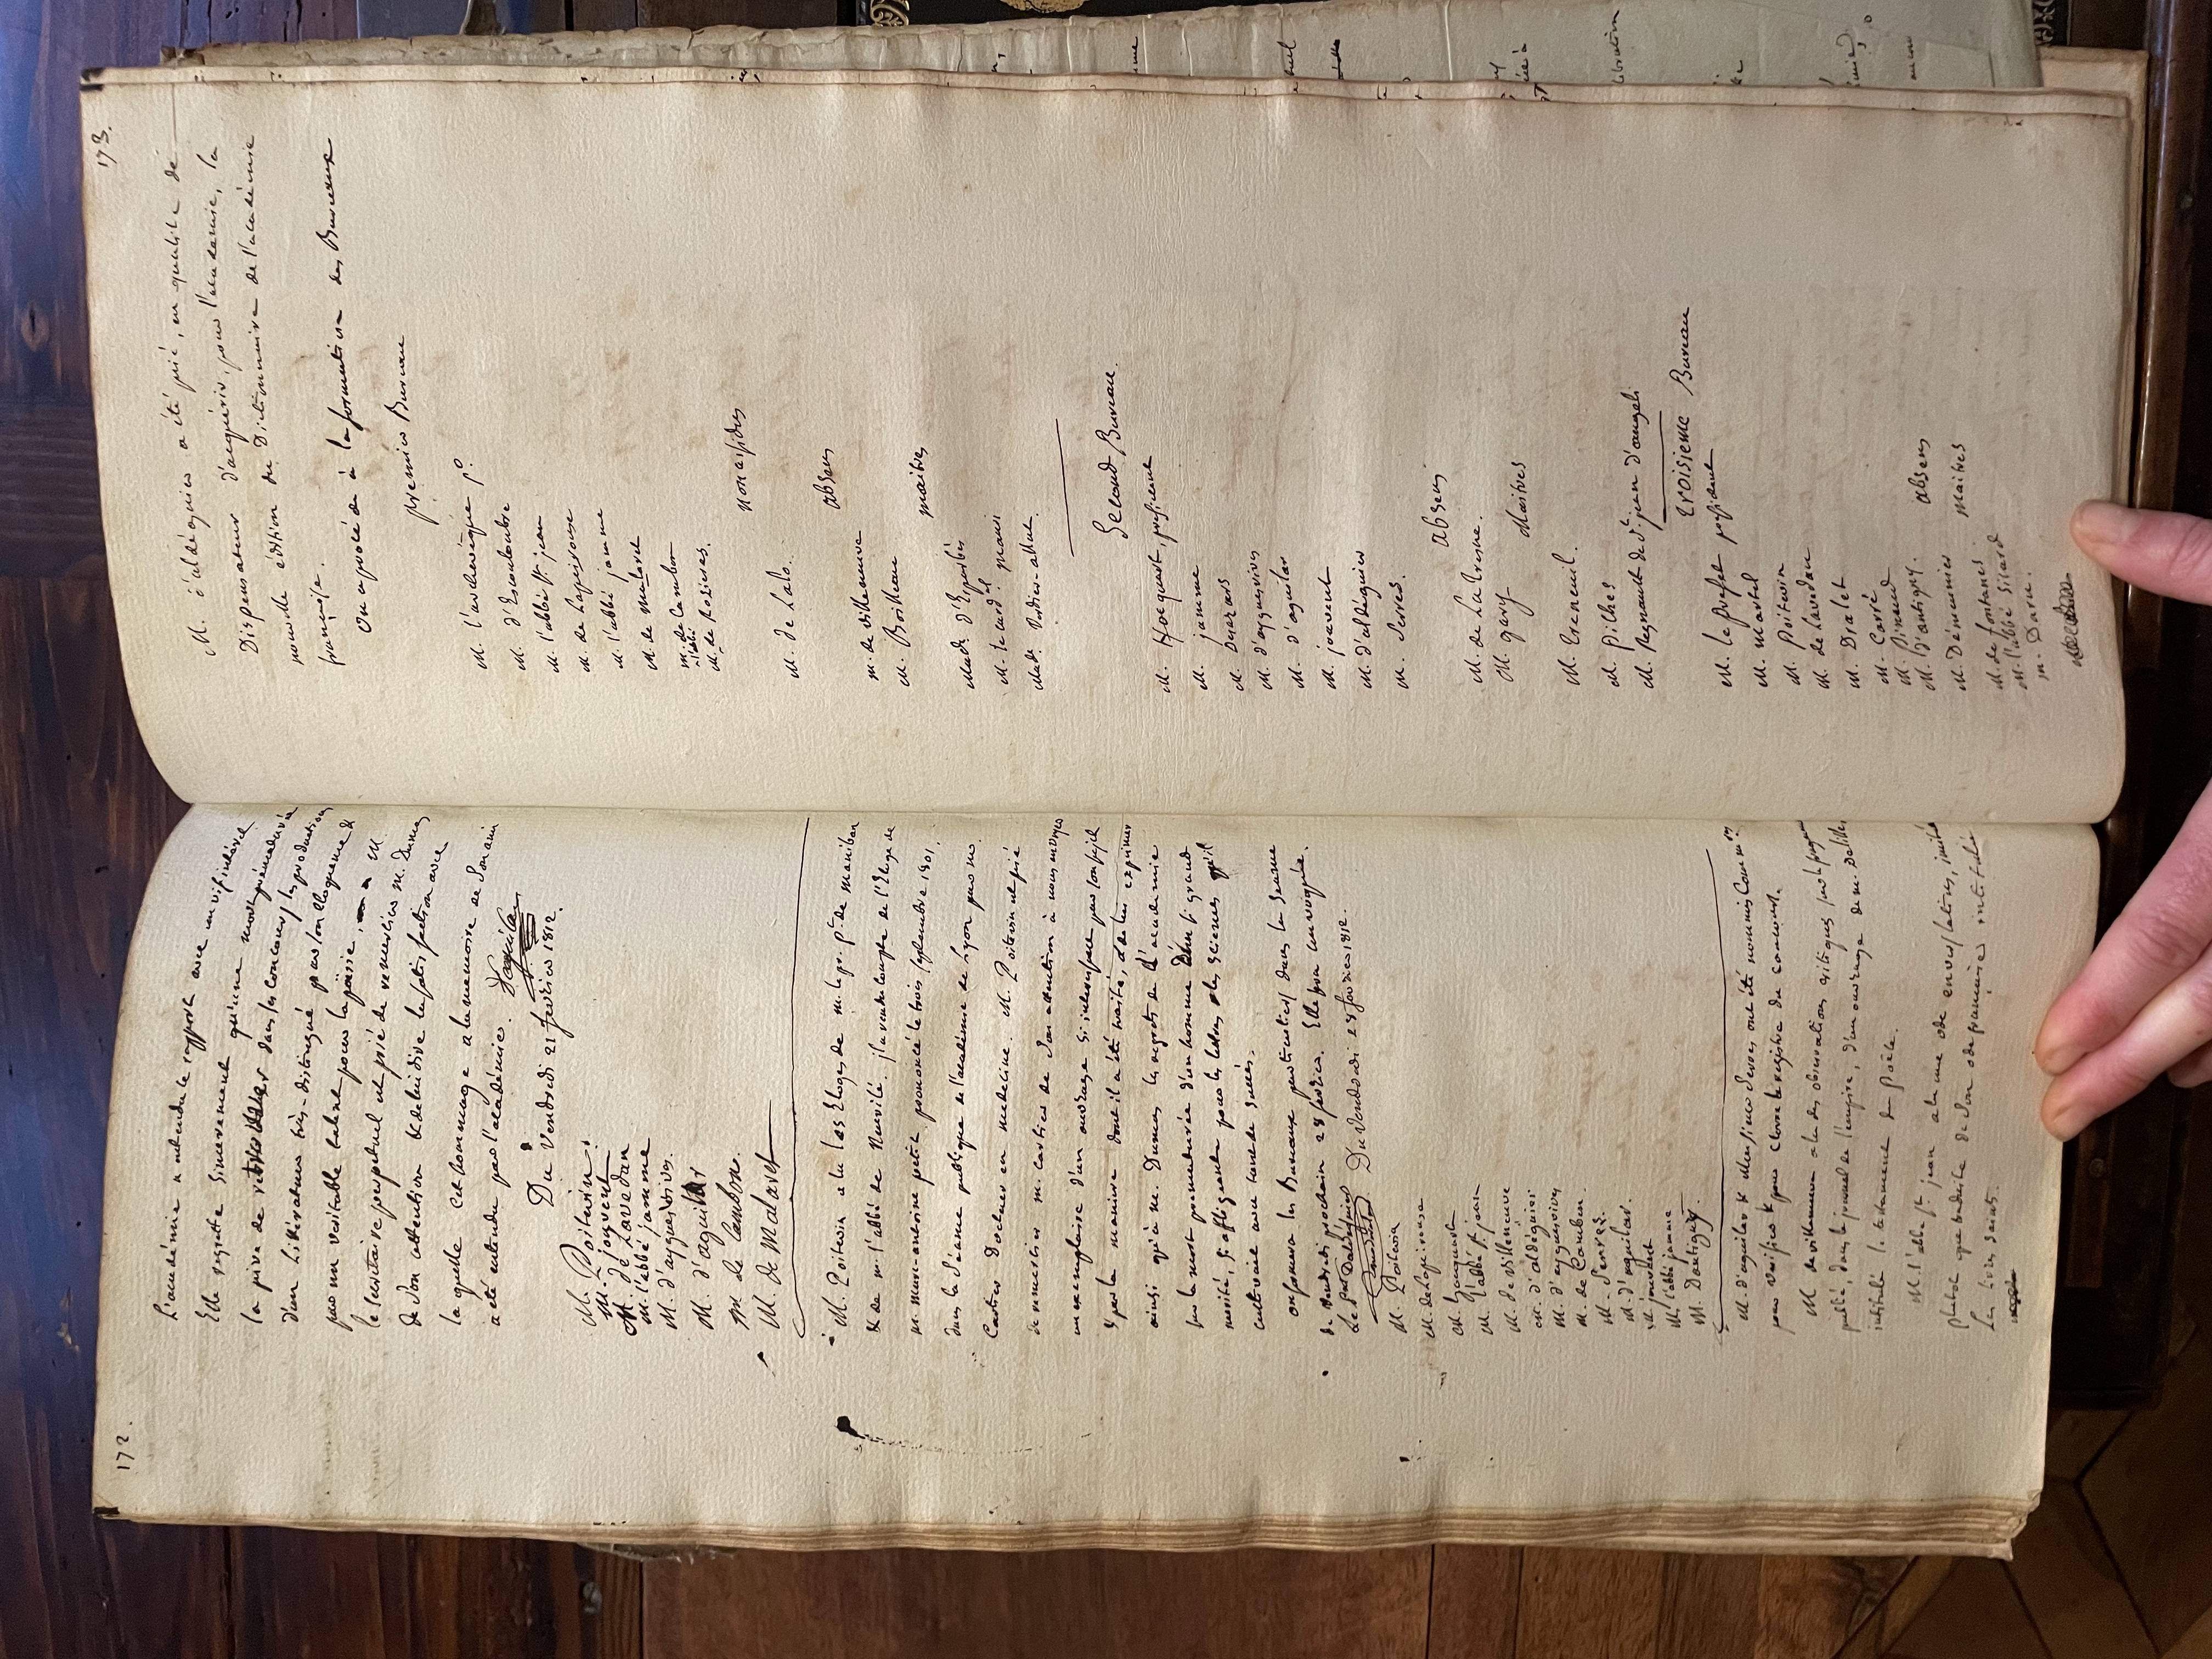 172.
L'académie a entendu le rapport avec un vif intérêt
Elle regrette sincerement qu'une mort prématurée
la prive de dans ses concours les productions
d'un Littérateur très-distingué par son éloquence &
par un véritable talent pour la poësie, M.
le secrétaire perpetuel est prié de remercier M. Dumas
de son attention & de lui dire la satisfaction avec
la quelle cet hommage a la memoire de son ami
a été entendu par l'académie. D'aguilar
Du Vendredi 21 fevrier 1812.
M. Poitevin.
M. jouvent
M. de Lavedan
M. l'abbé jamme
M. d'ayguesvives.
M. d'aguilar
M. de Cambon.
M. de Malaret
M. Poitevin a lu les Eloges de M. le pr. pt. de Maniban
& de M. l'abbé de
M. Marc-antoine petit prononcé le trois septembre 1801.
dans la séance publique de l'académie de Lyon par M.
Cartier Docteur en medecine. M. Poitevin est prié
de remercier M. Cartier de son attention à nous envoyer
un exemplaire d'un ouvrage si interessant par son sujet
& par la maniere dont il a été traité, & de lui exprimer
ainsi qu'à M. Dumas les regrets de l'académie
sur la mort prematurée d'un homme d'un si grand
merite, si affligeante pour les lettres & les sciences qu'il
cultivait avec tant de succès.
on formera les Bureaux particuliers dans la seance
de vendredi prochain 28 fevrier. Elle sera convoquée.
Du Vendredi 28 fevrier 1812.
M. Poitevin
M. de lapeirouse
M. hocquart
M. l'abbé st jean
M. de Villeneuve
M. d'aldéguier
M. d'ayguesvives
M. de Cambon.
M. Serres.
M. d'aguilar.
M. jouvent
M. l'abbé jamme
M. Dantigny.
M. d'aguilar & Messieurs Serres ont été nommés Comm.res
pour vérifier & pour clorre le registre du concours.
M. de villeneuve a lu des observations critiques
publié, dans le journal de l'empire, d'un ouvrage de M. Delille
intitulé le testament du poëte.
M. l'abbé st. jean a lu une ode en vers latins, imitée
plutot que traduite de son ode françoise intitulée
Les livres saints.
173.
M. d'aldéguier a été prié, en qualité de
Dispensateur d'acquérir, pour l'academie, la
nouvelle édition du Dictionnaire de l'académie
françoise.
On a procédé à la formation des Bureaux
premier Bureau
M. l'archévêque pt.
M. d'Escouloubre
M. l'abbé St jean
M. de Lapeirouse
M. l'abbé jamme
M. de Malaret
M. de Cambon
M. de Rozieres.
non résidens
M. de Lalo.
absens
M. de villeneuve
M. Boilleau
maitres
Mad. d'Esparbès
M. le card.al mauri
Mad. Verdier-allut.
Second Bureau.
M. Hocquart, president
M. jamme
M. Desazars
M. d'ayguesvives
M. d'aguilar
M. jouvent
M. d'aldéguier
M. Serres.
absens
M. de La Tresne.
M. gary
Maitres
M. Treneuil.
M. Pilhes
M. Regnault de St. jean d'angeli
troisieme Bureau
M. le prefet president
M. martel
M. Poitevin
M. de Lavedan
M. Dralet
M. Carré
M. Pinaud
M. D'antigny.
absens
M. Démeunier
maitres
M. de fontanes
M. l'abbé Sicard
M. Daru.